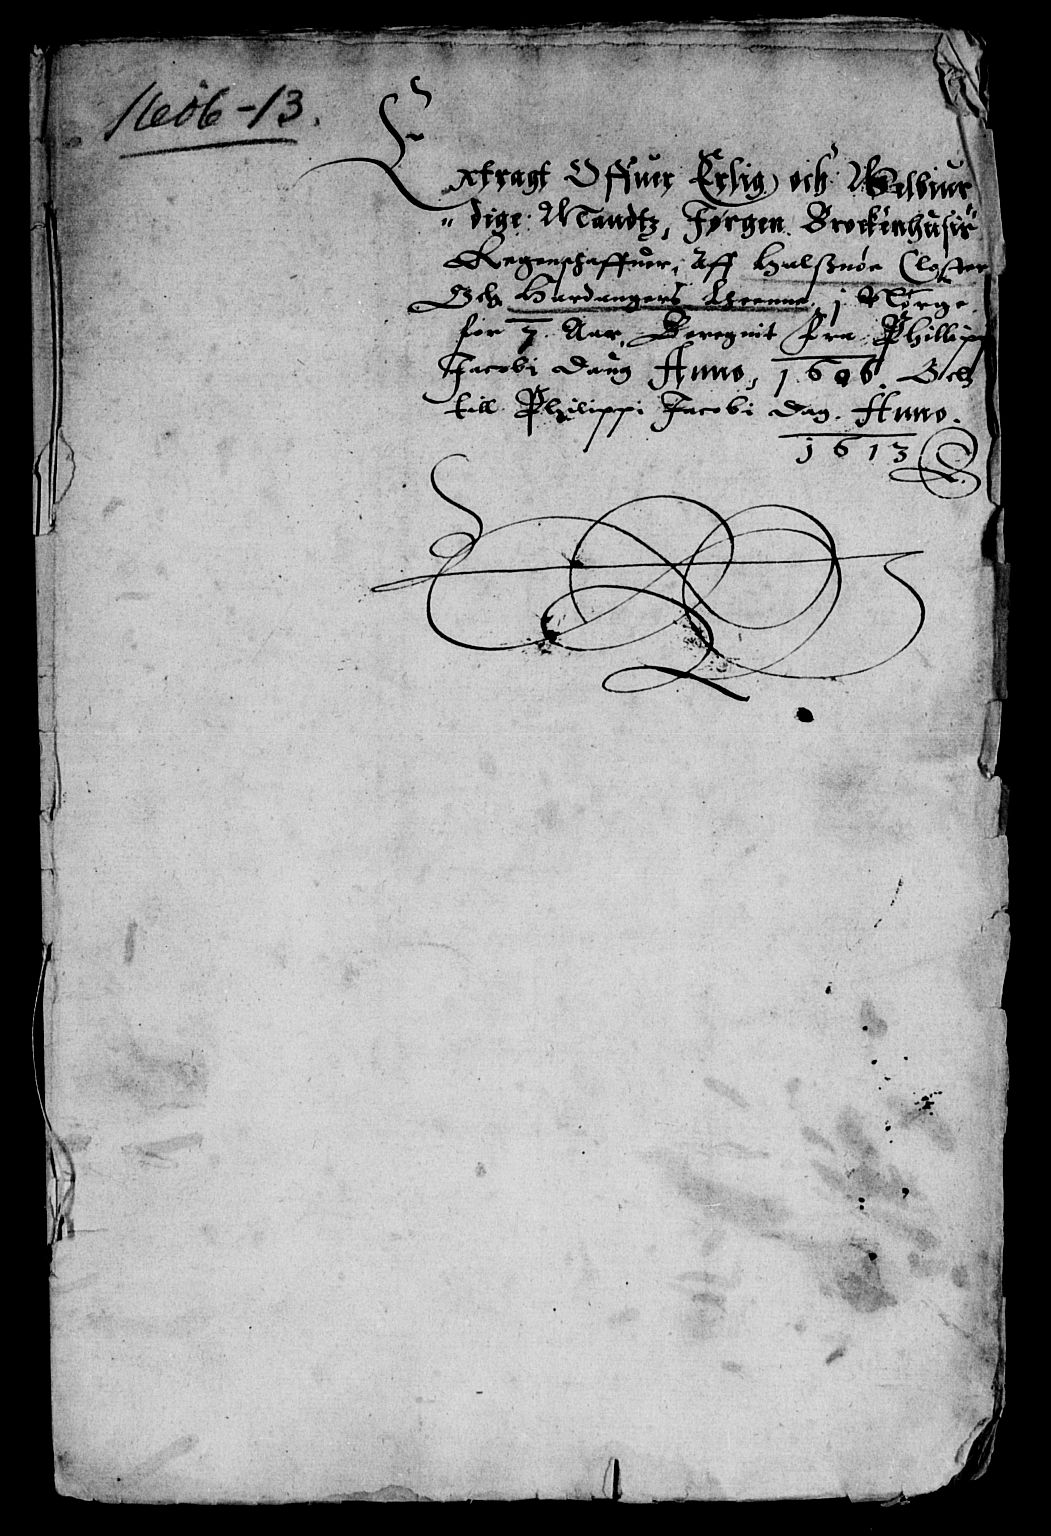 1606-13.
Extragt Offuer Erlig och Welbiur
dige Mandtz, Jørgen Brockenhusis
Regenschaffuer, Aff Halssnøe Closter
Och Hardangers Lheenne, i Norge
for 7 Aar, Beregnit fra Phillippi
Jacobi Daug Anno, 1606. Och
till Philippi Jacobi Dag. Anno.
1613